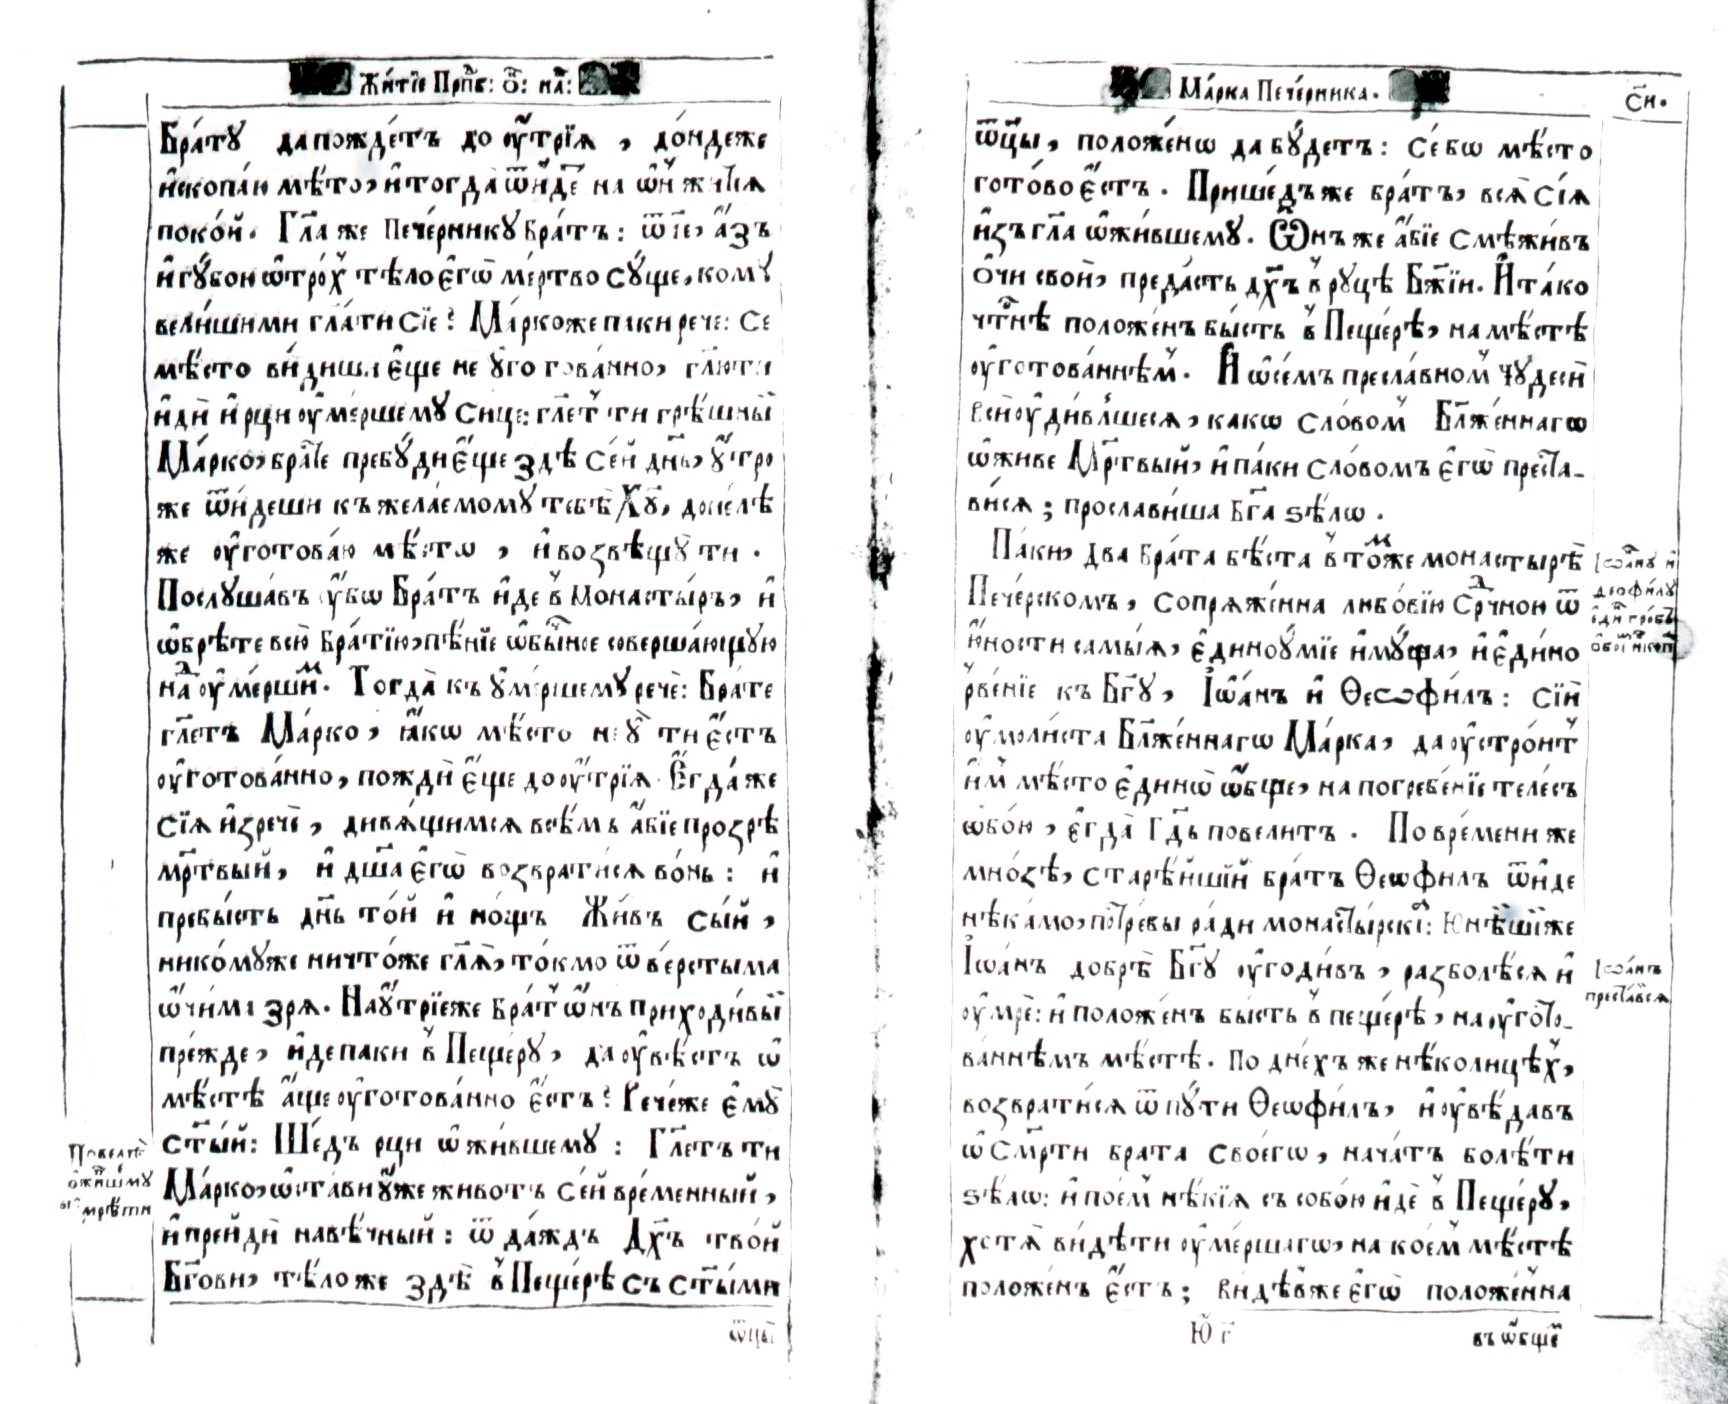 Житїе Прпⷣб: ѻ҃: на҃:
Бра́тꙋ да пожде́тъ до оу҆́трїѧ , до́ндеже
и҆скопа́ю мѣ́сто, и҆ тогда̀ ѿи́деⷲ҇ на ѡ҆́нъ житїѧ̀
поко́й. Гл҃а же Пече́рникꙋ бра́тъ: ѿче, а҆́зъ
и҆ гꙋ́бою ѡ҆тро́хъ тѣ́ло є҆гѡ̀ ме́ртво сꙋ́ще, комꙋ̀
вели́ши ми гл҃ати сїѐ? Ма́рко же паки рече: се
мѣ́сто ви́диши є҆ще не ᲂу҆гогова́нно, гл҃ю ти
и҆дѝ и҆ рци ᲂу҆ме́ршемꙋ си́це: гл҃етъ ти грѣ́шный
Ма́рко, бра́те пребꙋ́ди є҆ще здѣ̀ се́й дн҃ь, ᲂу҆́тро
же ѿи́деши къ жела́емомꙋ тебѣ̀ Хꙋ҃, до́нелѣ
же ᲂу҆готова́ю мѣ́сто , и҆ возвѣщꙋ̀ ти .
Послꙋша́въ ᲂу҆́бѡ Бра́тъ и҆́де в̾ монасты́рь, и҆
ѡ҆брѣ́те всю̀ бра́тїю, пѣ́нїе ѡ҆бы́чное соверша́ющꙋю
наⷣ ᲂу҆ме́ршиⷨ. Тогда̀ къ ᲂу҆ме́ршемꙋ речѐ: Бра́те
гл҃етъ Ма́рко, ꙗ҆́кѡ мѣ́сто не ᲂу҆̀ ти є҆́стъ
ᲂу҆готова́нно, пождѝ є҆ще до ᲂу҆́трїѧ. Є҆гда́ же
сїѧ̀ и҆зречѐ, дивѧ́щимсѧ всѣ́мъ а҆́бїе прозрѣ̀
мр҃твый, и҆ дш҃а є҆гѡ̀ возврати́сѧ во́нь: и҆
пребы́сть дн҃ь то́й и҆ но́щь Жи́въ сы́й,
нико́мꙋже ничто́же гл҃ѧ, то́кмо ѿве́рстыма
ѻ҆чи́ма зрѧ̀. Наꙋ́трїе же бра́тъ ѡ҆́нъ приходи́вый
пре́жде, и҆́де паки в̾ Пеще́рꙋ, да ᲂу҆вѣ́стъ ѡ҆
мѣ́стѣ а҆́ще ᲂу҆готова́нно є҆́стъ? Рече́же є҆мꙋ̀
ст҃ы́й: Ше́дъ рци ѡ҆жи́вшемꙋ : Гл҃етъ ти
Ма́рко, ѡ҆ста́ви ᲂу҆́же живо́тъ се́й вре́менный,
и҆ прейдѝ на вѣ́чный: ѿда́ждь Дх҃ъ тво́й
Бг҃ови, тѣ́ло же здѣ̀ в̾ Пеще́рѣ съ ст҃ы́ми
ѿцы
Повелѣ̀
ѡ҆жи́вшмꙋ
ᲂу҆мрѣ́ти
Ма́рка Пече́рника.
с҃и.
ѿцы, положе́но да бꙋ́детъ: се́ бѡ мѣ́сто
гото́во є҆́стъ . Прише́дъ же бра́тъ, всѧ̀ сїѧ̀
и҆зъгл҃а ѡ҆жи́вшемꙋ. Ѡ҆нъ же а҆́бїе смѣжи́въ
ѻ҆́чи своѝ, преда́стъ дх҃ъ в̾ рꙋцѣ Бж҃їи. И҆ та́ко
чтⷭ҇нѣ положе́нъ бы́сть в̾ Пеще́рѣ, на мѣ́стѣ
ᲂу҆готова́ннѣмъ. И҆ ѡ҆ се́мъ пресла́вномъ чꙋдесѝ
всѝ ᲂу҆диви́вшесѧ, ка́кѡ сло́вомъ Бл҃же́ннагѡ
ѡ҆живе Мр҃твый, и҆ па́ки сло́вомъ є҆гѡ̀ преста-
ви́сѧ ; просла́виша Бг҃а ѕѣ́лѡ .
Па́ки, два бра́та бѣ́ста в̾ то́мже монастырѣ̀
Пече́рскомъ, сопрѧже́нна любо́вїю срⷣчною ѿ
ю҆́ности самы́ѧ, є҆диноꙋ́мїе и҆мꙋ́ща, и҆ є҆ди́но
рве́нїе къ Бг҃ꙋ, І҆ѡа́нъ и҆ Ѳеѡфи́лъ: сїѝ
ᲂу҆моли́ста Бл҃же́ннагѡ Ма́рка, да ᲂу҆стро́итъ
и҆́мъ мѣ́сто є҆ди́нѡ ѡ҆́бще, на погребе́нїе теле́съ
ѡ҆бо́ю , є҆гда̀ Гдⷭ҇ь повели́тъ . По вре́мени же
мно́зѣ, старѣ́йшїй бра́тъ Ѳеѡфи́лъ ѿи́де
нѣ́камо, потре́бы ра́ди монасты́рскїѧ: Юнѣ́йшїйже
І҆ѡа́нъ добрѣ̀ Бг҃ꙋ ᲂу҆годи́въ , разболѣ́сѧ и҆
ᲂу҆́мре: и҆ положе́нъ бы́сть в̾ пеще́рѣ, на ᲂу҆гото-
ва́ннѣмъ мѣ́стѣ. По дне́хъ же нѣ́колицѣхъ,
возврати́сѧ ѿ пꙋти́ Ѳеѡфи́лъ, и҆ ᲂу҆вѣ́давъ
ѡ҆ См҃рти брата своегѡ̀, нача́тъ болѣ́ти
ѕѣ́лѡ: и҆ пое́мъ нѣ́кїѧ съ собо́ю и҆́де в̾ Пеще́рꙋ,
хотѧ̀ ви́дѣти ᲂу҆ме́ршаго, на ко́емъ мѣ́стѣ
положе́нъ є҆́стъ ; Ви́дѣвже є҆гѡ̀ положе́нна
Ю҆ г҃
въ ѡ҆́бщеⷨ
І҆ѡа́нꙋ и҆
Ѳеофи́лꙋ
є҆ди́нъ гро́бъ
І҆ѡа́нъ
преста́висѧ